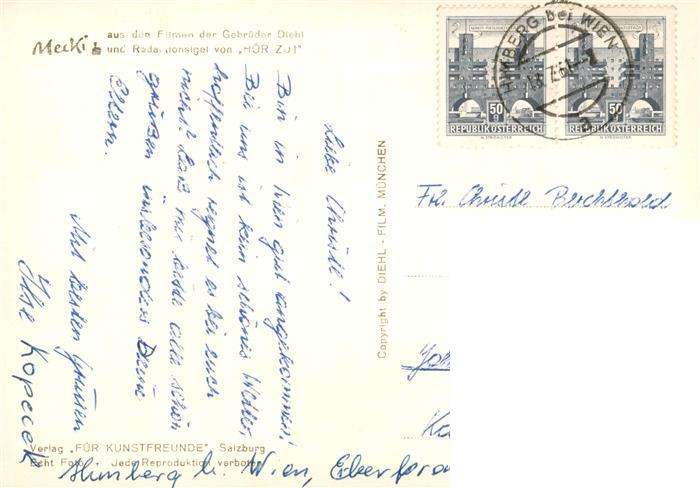 Mecki
aus den Filmen der Gebrüder Diehl
und Redaktionsigel von „HÖR ZU!"
Liebe Christl!
Bin in Wien gut angekommen!
Bei uns ist kein schönes Wetter,
hoffentlich regnet es bei euch
nicht! Lass mir bitte alle schön
grüßen insbesonders Deine
Eltern.
Mit besten Grüßen
Ilse Kopecek
Himberg b. Wien, Eberfora
Verlag „FÜR KUNSTFREUNDE", Salzburg
Echt Foto - Jede Reproduktion verboten
Copyright by DIEHL - FILM, MÜNCHEN
HIMBERG BEI WIEN
50
g
REPUBLIK ÖSTERREICH
50
g
REPUBLIK ÖSTERREICH
Frl. Christl Berchtold